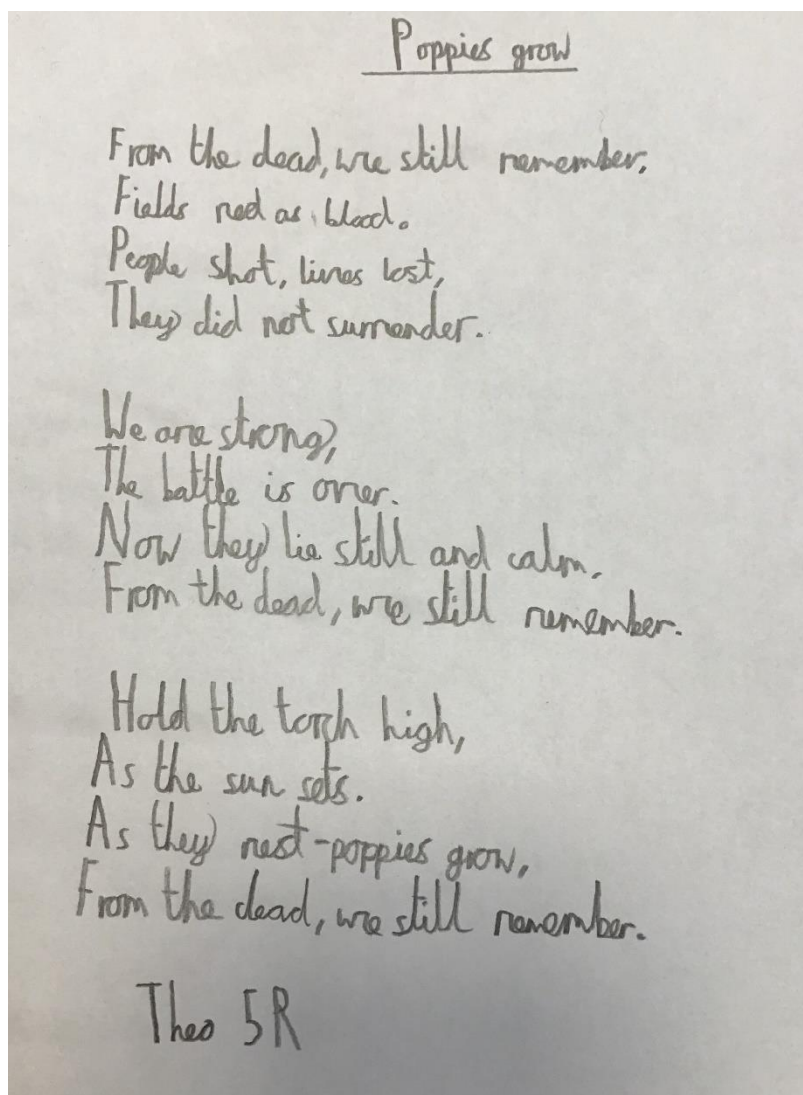 Poppies grow
From the dead, we still remember,
Fields red as blood.
People shot, lives lost,
They did not surrender.
We are strong,
The battle is over.
Now they lie still and calm,
From the dead, we still remember.
Hold the torch high,
As the sun sets.
As they rest-poppies grow,
From the dead, we still remember.
Theo 5R